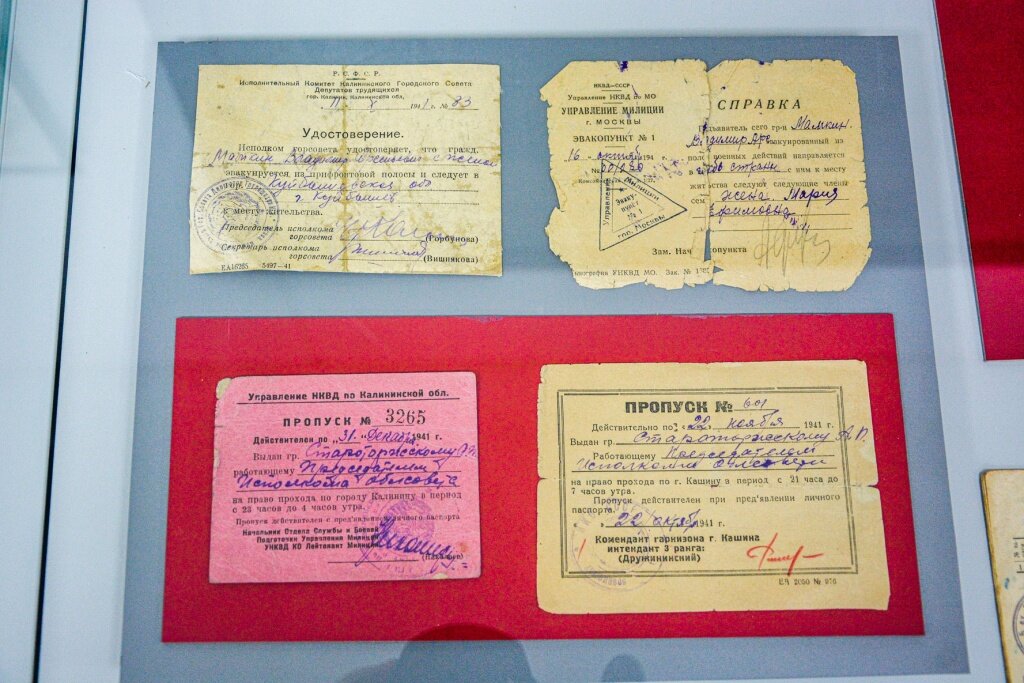 Р. С. Ф. С. Р.
Исполнительный Комитет Калининского Городского Совета
Депутатов трудящихся
гор. Калинин, Калининская обл.
11 X 1941 г. № 83
Удостоверение.
Исполком горсовета удостоверяет, что гражд.
Мамкин Владимир с женой
эвакуируется из прифронтовой полосы и следует в
Куйбышевская обл
г. Куйбышев
к месту жительства.
Председатель исполкома
горсовета (Горбунова)
Секретарь исполкома
горсовета (Вишнякова)
ЕА16285 5497—41
НКВД—СССР
Управление НКВД по МО
УПРАВЛЕНИЕ МИЛИЦИИ
г. МОСКВЫ
ЭВАКОПУНКТ № 1
16 октябр 194 г.
№
Управление Милиции гор. Москвы
Эвакопункт № 1
СПРАВКА
дъявитель сего гр-н Мамкин
Владимир вакуированный из
пол военных действий направляется
страны с ним к месту
жит ства следуют следующие члены
сем жена Мария
Ефимовна
Зам. Нач опункта
нография УНКВД МО. Зак. №
Управление НКВД по Калининской обл.
ПРОПУСК № 3265
Действителен по „31“ декабр 1941 г.
Выдан гр. Староторжскому
работающему Председателем
Исполкома облсовета
на право прохода по городу Калинину в период
с 23 часов до 4 часов утра.
Пропуск действителен с пред'явлением личного паспорта
Начальник Отдела Службы и Боевой
Подготовки Управления Милиции
УНКВД КО Лейтенант Милиции
ПРОПУСК № 601
Действительно по „22“ ноября 1941 г.
Выдан гр. Староторжскому А. П.
Работающему Председателем
Исполкома
на право прохода по г. Кашину в период с 21 часа до
7 часов утра.
Пропуск действителен при пред'явлении личного
паспорта.
„ 22 октябр 1941 г.
Комендант гарнизона г. Кашина
интендант 3 ранга:
(Дружининский)
ЕА 2050 № 976